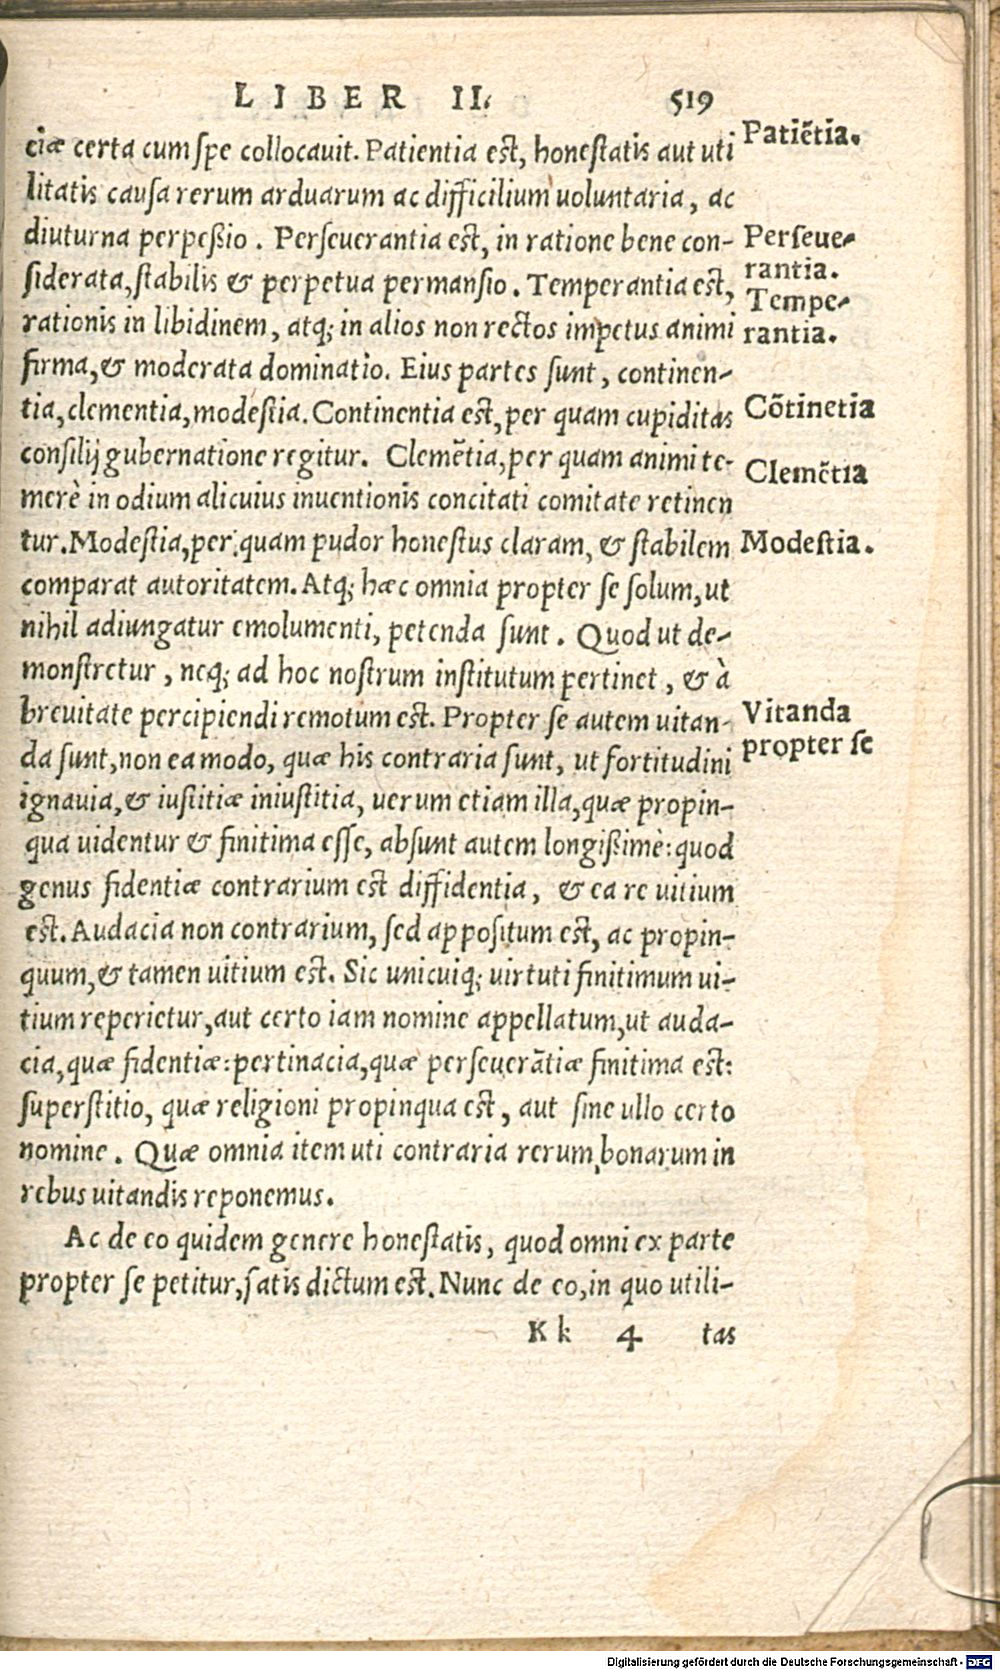 LIBER II. 519
ciæ certa cum ſpe collocauit. Patientia eſt, honeſtatis aut uti
litatis cauſa rerum arduarum ac difficilium uoluntaria, ac
diuturna perpeßio. Perſeuerantia eſt, in ratione bene con-
ſiderata, ſtabilis & perpetua permanſio. Temperantia eſt,
rationis in libidinem, atq; in alios non rectos impetus animi
firma, & moderata dominatio. Eius partes ſunt, continen-
tia, clementia, modeſtia. Continentia eſt, per quam cupiditas
conſilij gubernatione regitur. Clemẽtia, per quam animi te-
merè in odium alicuius inuentionis concitati comitate retinen
tur. Modeſtia, per quam pudor honeſtus claram, & ſtabilem
comparat autoritatem. Atq; hæc omnia propter ſe ſolum, ut
nihil adiungatur emolumenti, petenda ſunt. Quod ut de-
monſtretur, neq; ad hoc noſtrum inſtitutum pertinet, & à
breuitate percipiendi remotum eſt. Propter ſe autem uitan-
da ſunt, non ea modo, quæ his contraria ſunt, ut fortitudini
ignauia, & iuſtitiæ iniuſtitia, uerum etiam illa, quæ propin-
qua uidentur & finitima eſſe, abſunt autem longißimè: quod
genus fidentiæ contrarium eſt diffidentia, & ea re uitium
eſt. Audacia non contrarium, ſed appoſitum eſt, ac propin-
quum, & tamen uitium eſt. Sic unicuiq; uirtuti finitimum ui-
tium reperietur, aut certo iam nomine appellatum, ut auda-
cia, quæ fidentiæ: pertinacia, quæ perſeuerãtiæ finitima eſt:
ſuperſtitio, quæ religioni propinqua eſt, aut ſine ullo certo
nomine. Quæ omnia item uti contraria rerum bonarum in
rebus uitandis reponemus.
Ac de eo quidem genere honeſtatis, quod omni ex parte
propter ſe petitur, ſatis dictum eſt. Nunc de eo, in quo utili-
Kk 4 tas
Patiẽtia.
Perſeue-
rantia.
Tempe-
rantia.
Cõtinetia
Clemẽtia
Modeſtia.
Vitanda
propter ſe
Digitalisierung gefördert durch die Deutsche Forschungsgemeinschaft - DFG